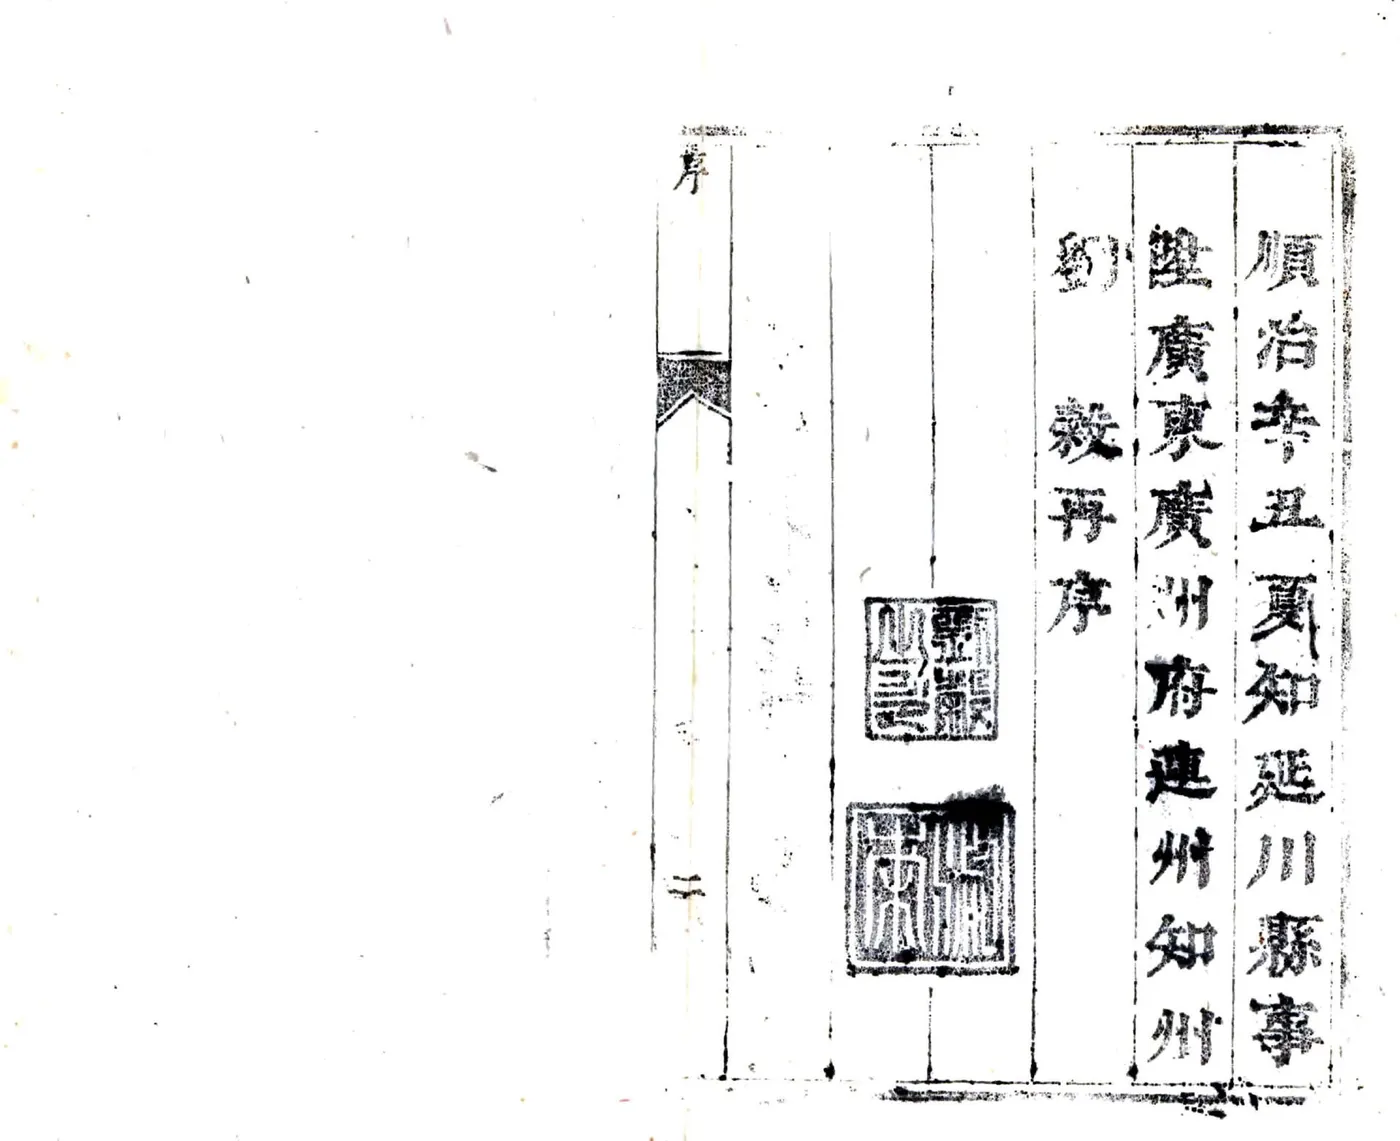 順治辛丑夏知延川縣事
陞廣東廣州府連州知州
劉　穀再序
劉穀之印
序
二